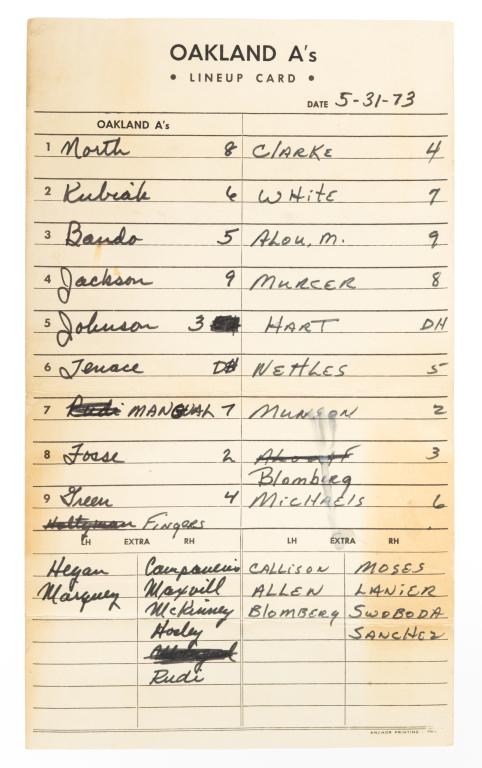 OAKLAND A's
• LINEUP CARD •
DATE 5-31-73
OAKLAND A's
1 North 8 CLARKE 4
2 Kubiak 6 WHITE 7
3 Bando 5 ALOU, M. 9
4 Jackson 9 MURCER 8
5 Johnson 3 HART DH
6 Tenace DH NETTLES 5
7 Rudi MANGUAL 7 MUNSON 2
8 Fosse 2 ALOU, F 3
Blomberg
9 Green 4 MICHAELS 6
Holtzman FINGERS
LH EXTRA RH LH EXTRA RH
Hegan Campaneris CALLISON MOSES
Marquez Maxvill ALLEN LANIER
McKinney BLOMBERG SWOBODA
Hosley SANCHEZ
Rudi
ANCHOR PRINTING